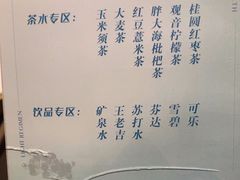 茶水专区：
玉米须茶
大麦茶
红豆薏米茶
胖大海枇杷茶
观音柠檬茶
桂圆红枣茶
饮品专区：
矿泉水
王老吉
苏打水
芬达
雪碧
可乐